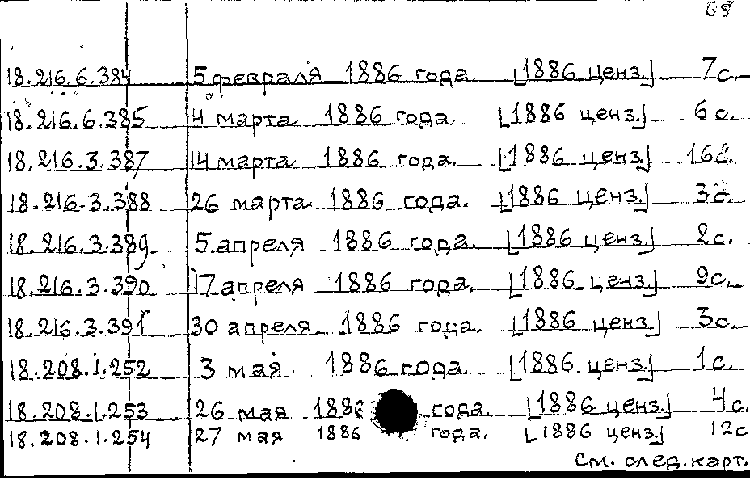 69
18.216.6.384 5 февраля 1886 года [1886 ценз.] 7с.
18.216.6.385 4 марта 1886 года. [1886 ценз.] 6с.
18.216.3.387 14 марта 1886 года. [1886 ценз.] 16с.
18.216.3.388 26 марта 1886 года. [1886 ценз.] 3с.
18.216.3.389 5.апреля 1886 года. [1886 ценз.] 2с.
18.216.3.390 17 апреля 1886 года. [1886 ценз.] 9с.
18.216.3.391 30 апреля 1886 года. [1886 ценз.] 3с.
18.208.1.252 3 мая 1886 года. [1886 ценз.] 1с.
18.208.1.253 26 мая 1886 года. [1886 ценз.] 4с.
18.208.1.254 27 мая 1886 года. [1886 ценз.] 12с
См. след. карт.